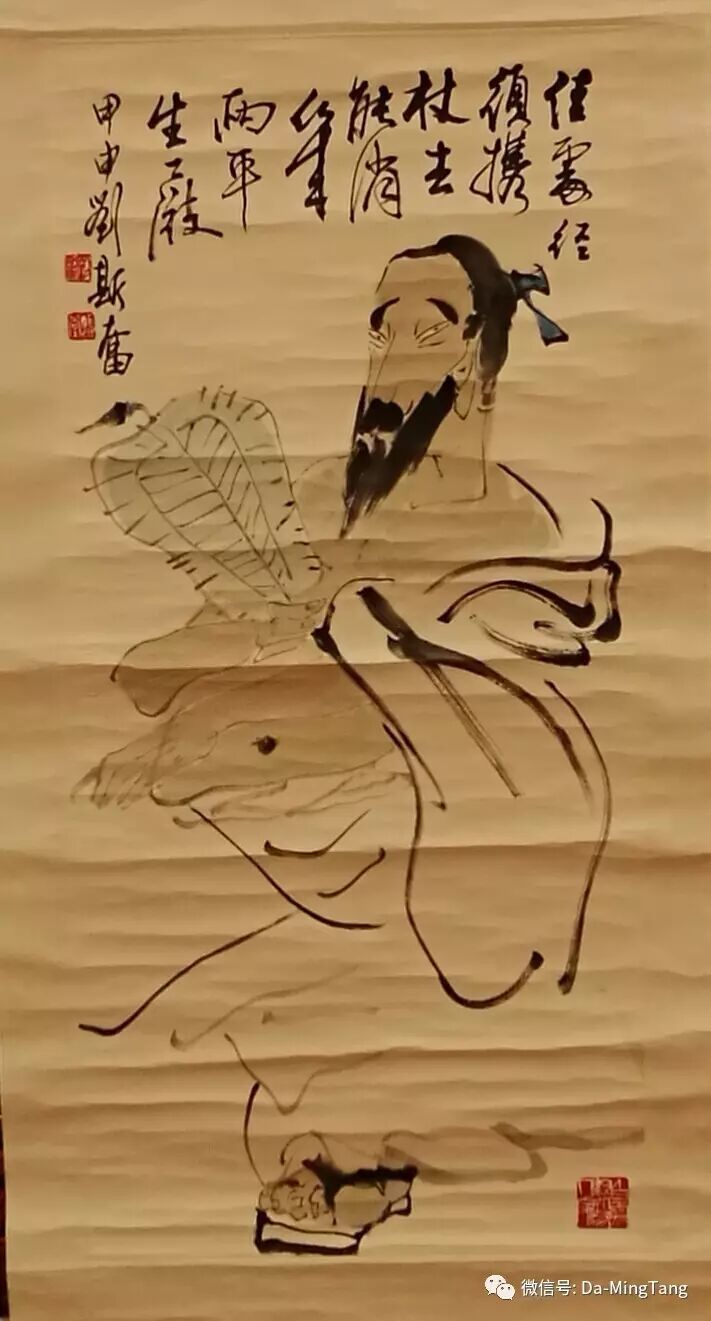 佳處径
須携
杖去
能消
幾
両平
生屐
甲申劉斯奮
微信号: Da-MingTang